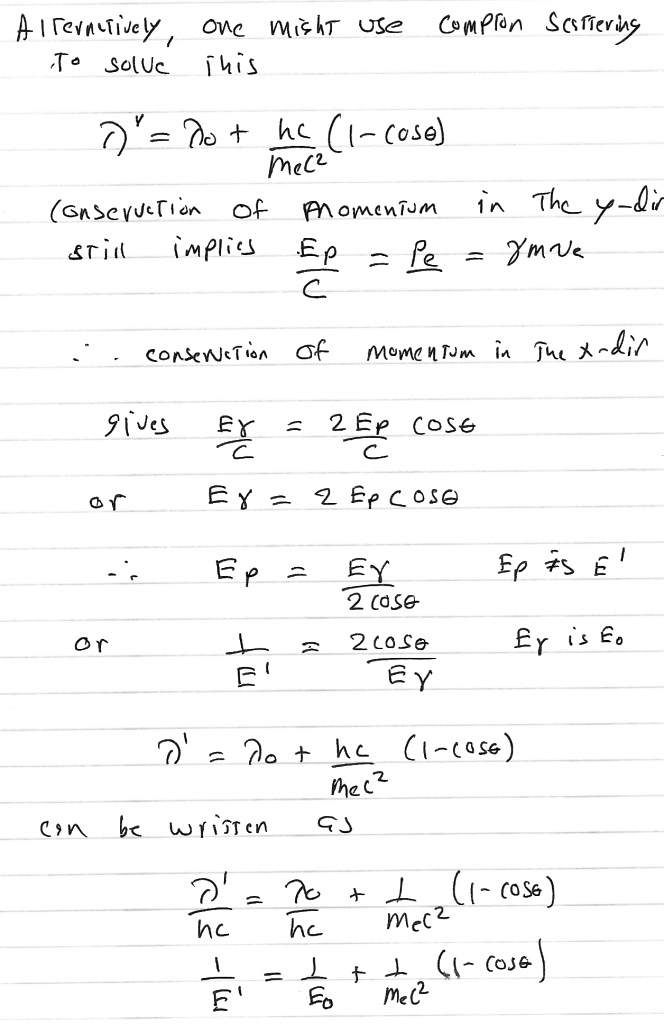 Alternatively, one might use Compton Scattering
To solve this
λ' = λ0 + hc/mec² (1 - cosθ)
Conservation of momentum in the y-dir
still implies Ep/c = Pe = γmve
∴ conservation of momentum in the x-dir
gives Eγ/c = 2Ep/c cosθ
or Eγ = 2 Ep cosθ
∴ Ep = Eγ/2cosθ Ep is E'
or 1/E' = 2cosθ/Eγ Eγ is E0
λ' = λ0 + hc/mec² (1-cosθ)
can be written as
λ'/hc = λ0/hc + 1/mec² (1-cosθ)
1/E' = 1/E0 + 1/mec² (1-cosθ)